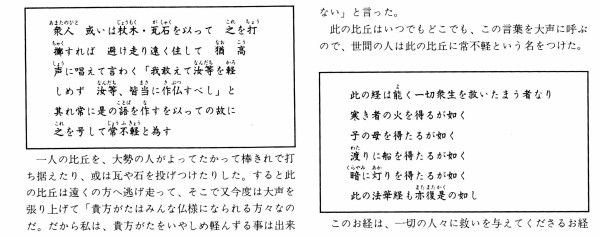 衆人 或いは杖木・瓦石を以って 之を打
擲すれば 避け走り遠く住して 猶 高
声に唱えて言わく「我敢えて汝等を軽
しめず 汝等、皆当に作仏すべし」と
其れ常に是の語を作すを以っての故に
之を号して常不軽と為す
一人の比丘を、大勢の人がよってたかって棒きれで打
ち据えたり、或は瓦や石を投げつけたりした。すると此
の比丘は遠くの方へ逃げ走って、そこで又今度は大声を
張り上げて「貴方がたはみんな仏様になられる方々なの
だ。だから私は、貴方がたをいやしめ軽んずる事は出来
ない」と言った。
此の比丘はいつでもどこでも、この言葉を大声に呼ぶ
ので、世間の人は此の比丘に常不軽という名をつけた。
此の経は能く一切衆生を救いたまう者なり
寒き者の火を得るが如く
子の母を得たるが如く
渡りに船を得たるが如く
暗に灯りを得たるが如く
此の法華経も亦復是の如し
このお経は、一切の人々に救いを与えてくださるお経